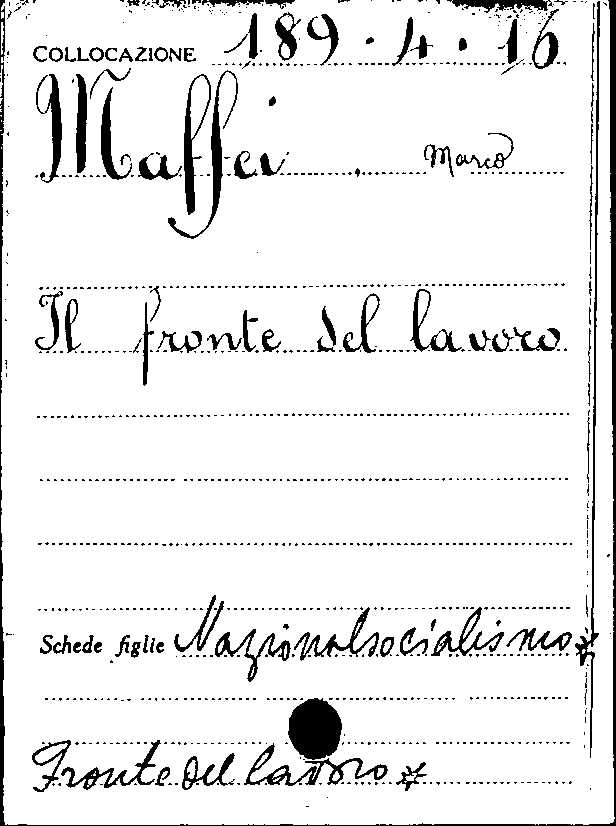 COLLOCAZIONE 189.4.16
Maffei Marco
Il fronte del lavoro
Schede figlie Nazionalsocialismo*
Fronte del lavoro*